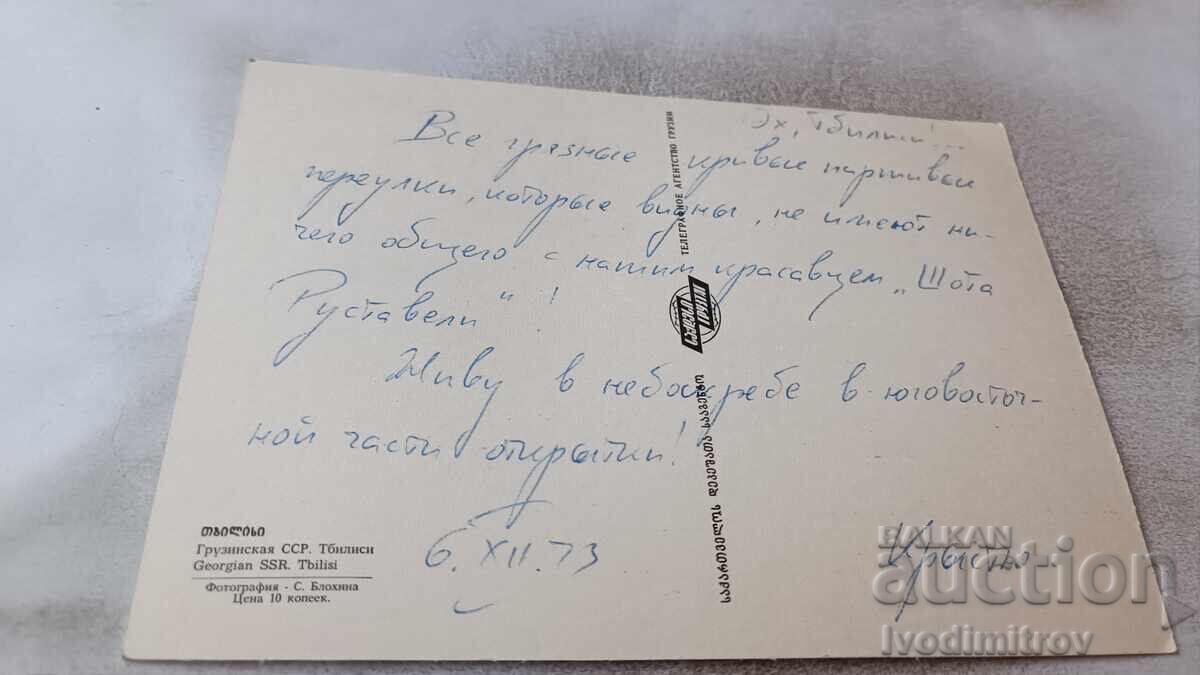 Эх, Тбилиси!...
Все грязные кривые паршивые
переулки, которые видны, не имеют ни-
чего общего с нашим красавцем „Шота
Руставели"!
Живу в небоскребе в юговосточ-
ной части открытки!
6.XII.73
Кръстю
თბილისი
Грузинская ССР. Тбилиси
Georgian SSR. Tbilisi
Фотография - С. Блохина
Цена 10 копеек.
ТЕЛЕГРАФНОЕ АГЕНТСТВО ГРУЗИИ
საქართველოს დეპეშათა სააგენტო
BALKAN
auction
Ivodimitrov